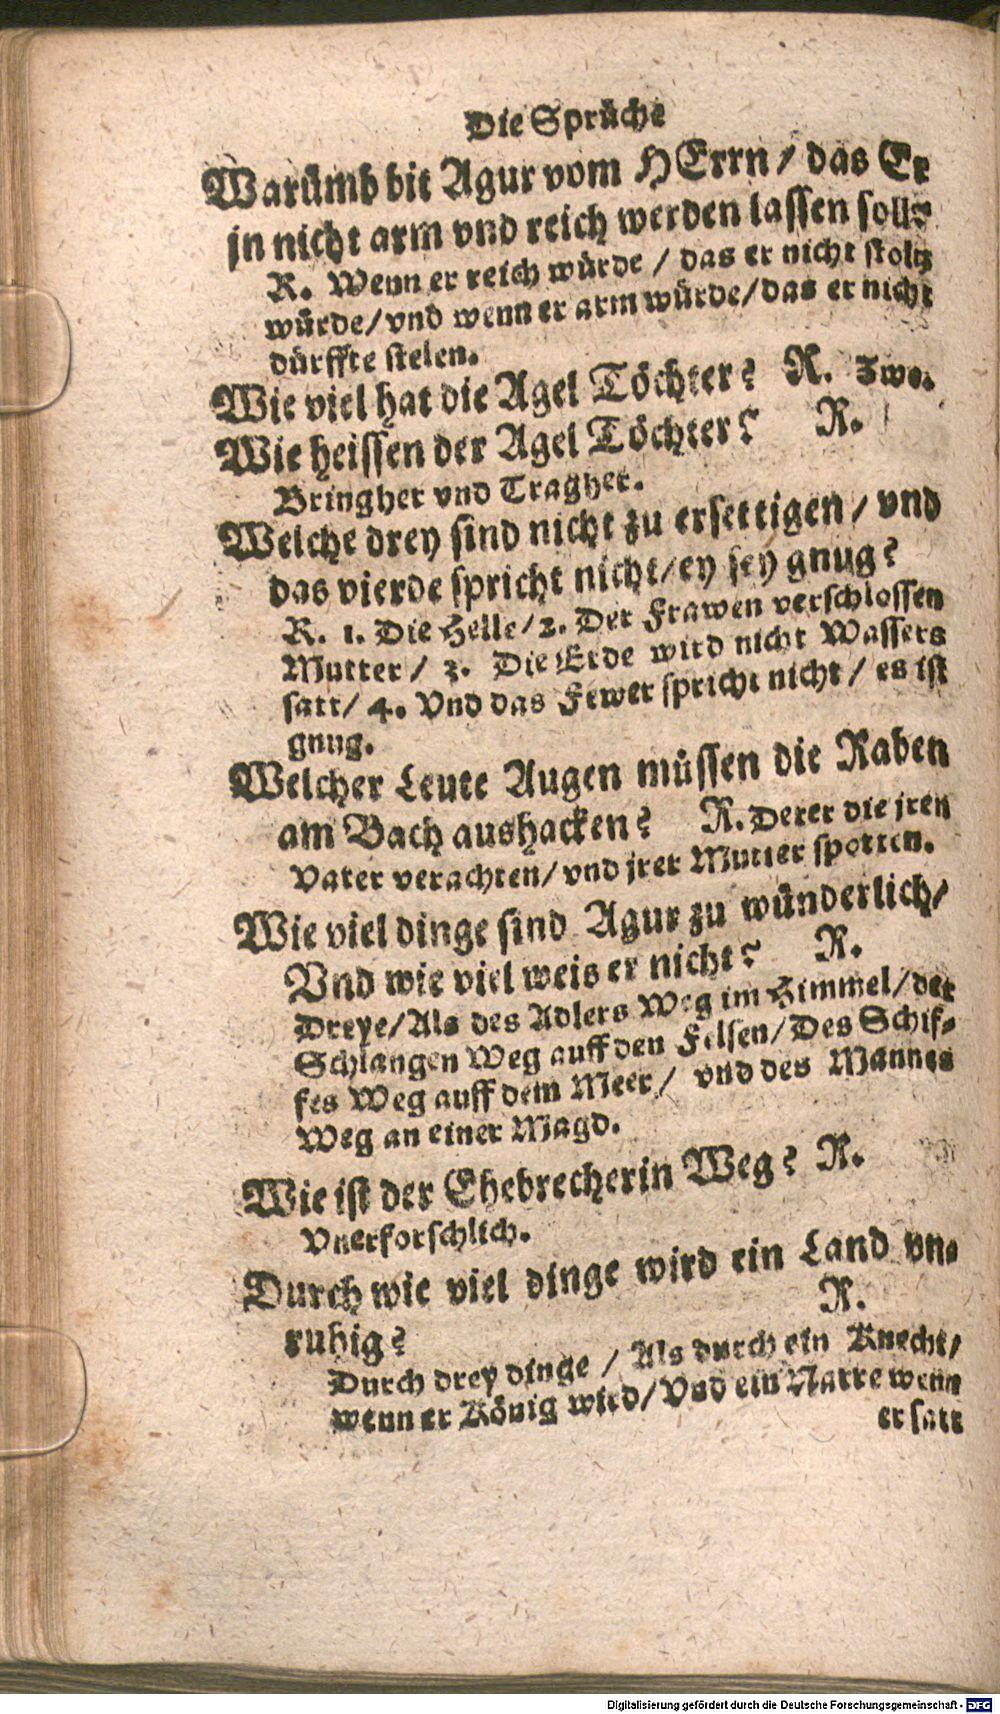 Die Sprüche
Warümb bit Agur vom HErrn / das Er
jn nicht arm vnd reich werden lassen soll?
R. Wenn er reich würde / das er nicht stoltz
würde/vnd wenn er arm würde/das er nicht
dürffte stelen.
Wie viel hat die Agel Töchter? R. Zwo.
Wie heissen der Agel Töchter? R.
Bringher vnd Tragher.
Welche drey sind nicht zu ersettigen / vnd
das vierde spricht nicht/ey sey gnug?
R. 1. Die Helle/2. Der Frawen verschlossen
Mutter / 3. Die Erde wird nicht Wassers
satt/ 4. Vnd das Fewer spricht nicht / es ist
gnug.
Welcher Leute Augen müssen die Raben
am Bach aushacken? R. Derer die jren
Vater verachten/vnd jrer Mutter spotten.
Wie viel dinge sind Agur zu wünderlich/
Vnd wie viel weis er nicht? R.
Dreye/Als des Adlers Weg im Himmel/der
Schlangen Weg auff den Felsen/Des Schif-
fes Weg auff dem Meer/ vnd des Mannes
Weg an einer Magd.
Wie ist der Ehebrecherin Weg? R.
Vnerforschlich.
Durch wie viel dinge wird ein Land vn-
ruhig? R.
Durch drey dinge / Als durch ein Knecht/
wenn er König wird/Vnd ein Narre wenn
er satt
Digitalisierung gefördert durch die Deutsche Forschungsgemeinschaft - DFG